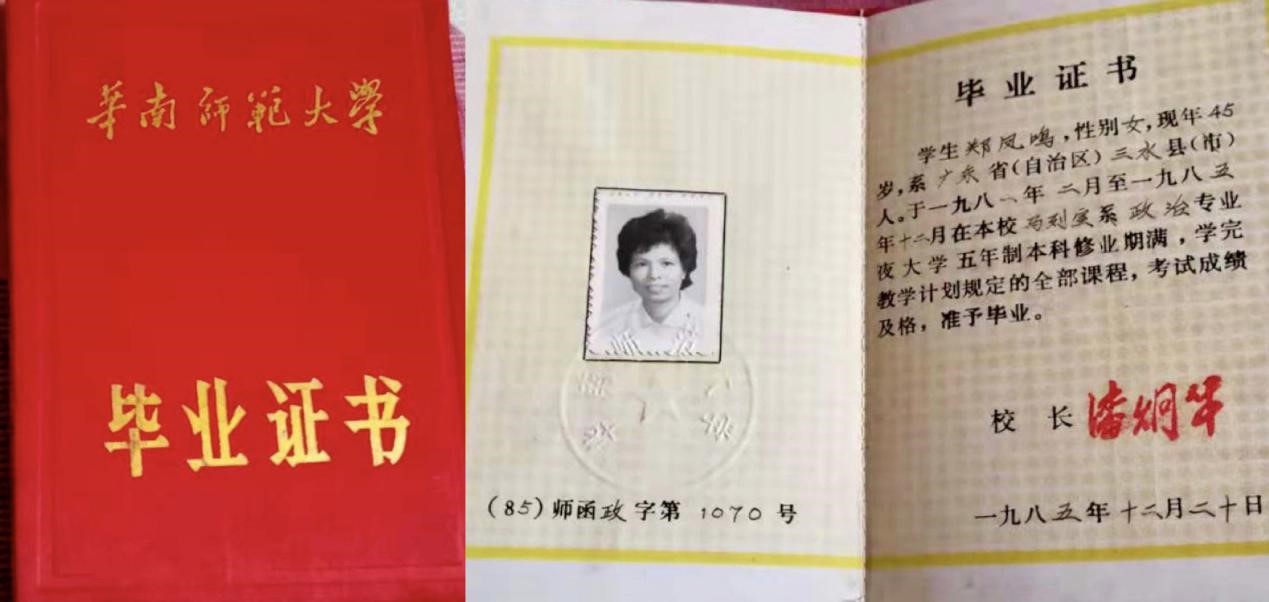 華南師範大學
毕业证书
(85)师函政字第 1070 号
毕业证书
学生郑凤鸣,性别女,现年45
岁,系广东省(自治区)三水县(市)
人。于一九八一年二月至一九八五
年十二月在本校马列室系政治专业
夜大学五年制本科修业期满,学完
教学计划规定的全部课程,考试成绩
及格,准予毕业。
校 长 潘炯华
一九八五年十二月二十日